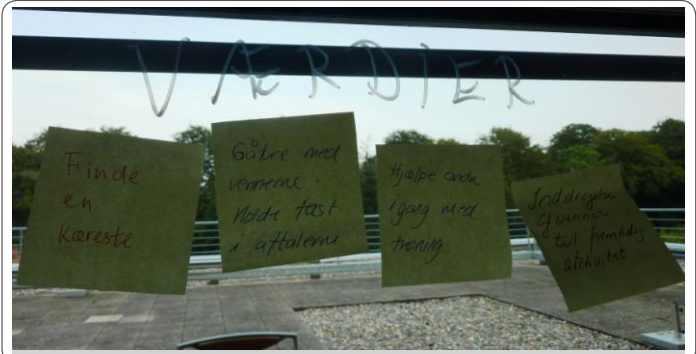 VÆRDIER
Finde
en
Kæreste
Gåture med
vennerne.
Holde fast
i aftalerne
Hjælpe andre
igang med
træning
Inddragelse
af venner
til fremtidig
aktivitet